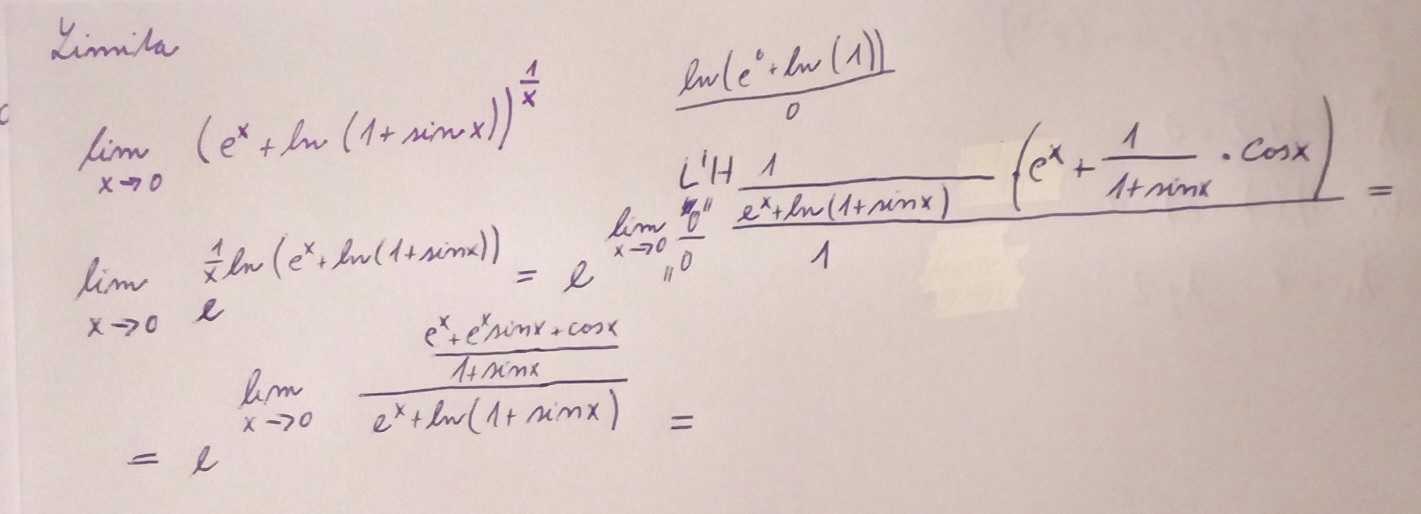 Limita
lim x→0 (e^x + ln (1 + sin x))^(1/x)
ln(e^0 + ln (1)) / 0
lim x→0 e^(1/x ln (e^x + ln(1+sinx))) = e^(lim x→0 L'H "0/0" (1/(e^x + ln(1+sinx)) (e^x + 1/(1+sinx) · cosx)) / 1) =
= e^(lim x→0 ((e^x + e^x sinx + cosx)/(1+sinx)) / (e^x + ln(1+ sinx))) =